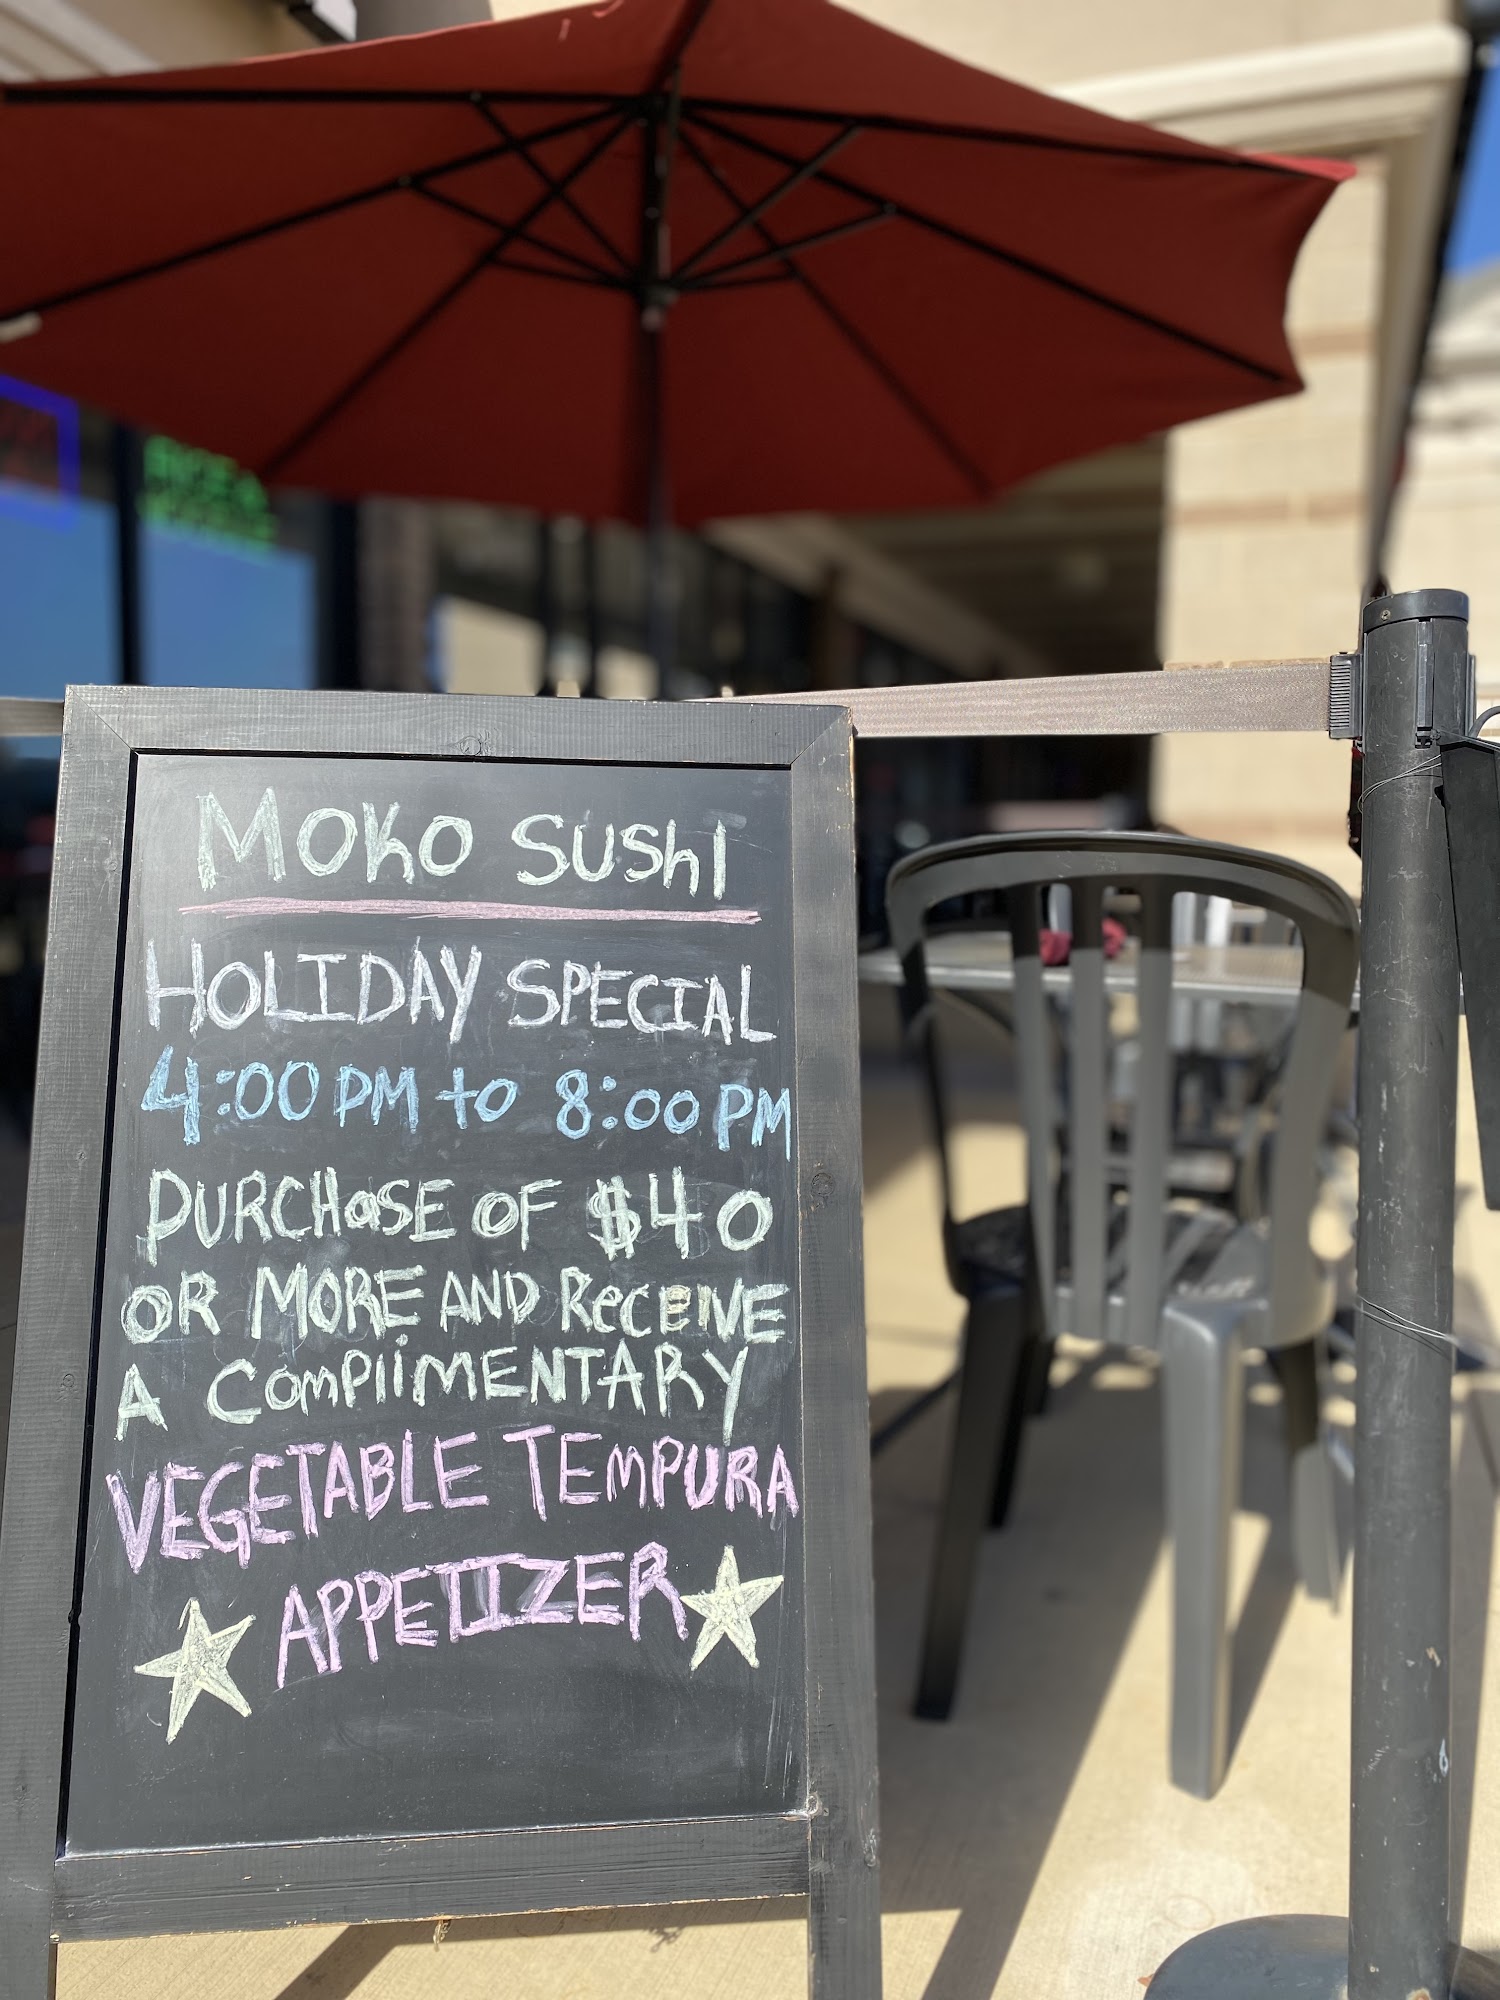 MOKO SUSHI
HOLIDAY SPECIAL
4:00 PM to 8:00 PM
PURCHaSE OF $40
OR MORE AND ReCEIVE
A COmPliMENTARY
VEGETABLE TEMPURA
APPETIZER